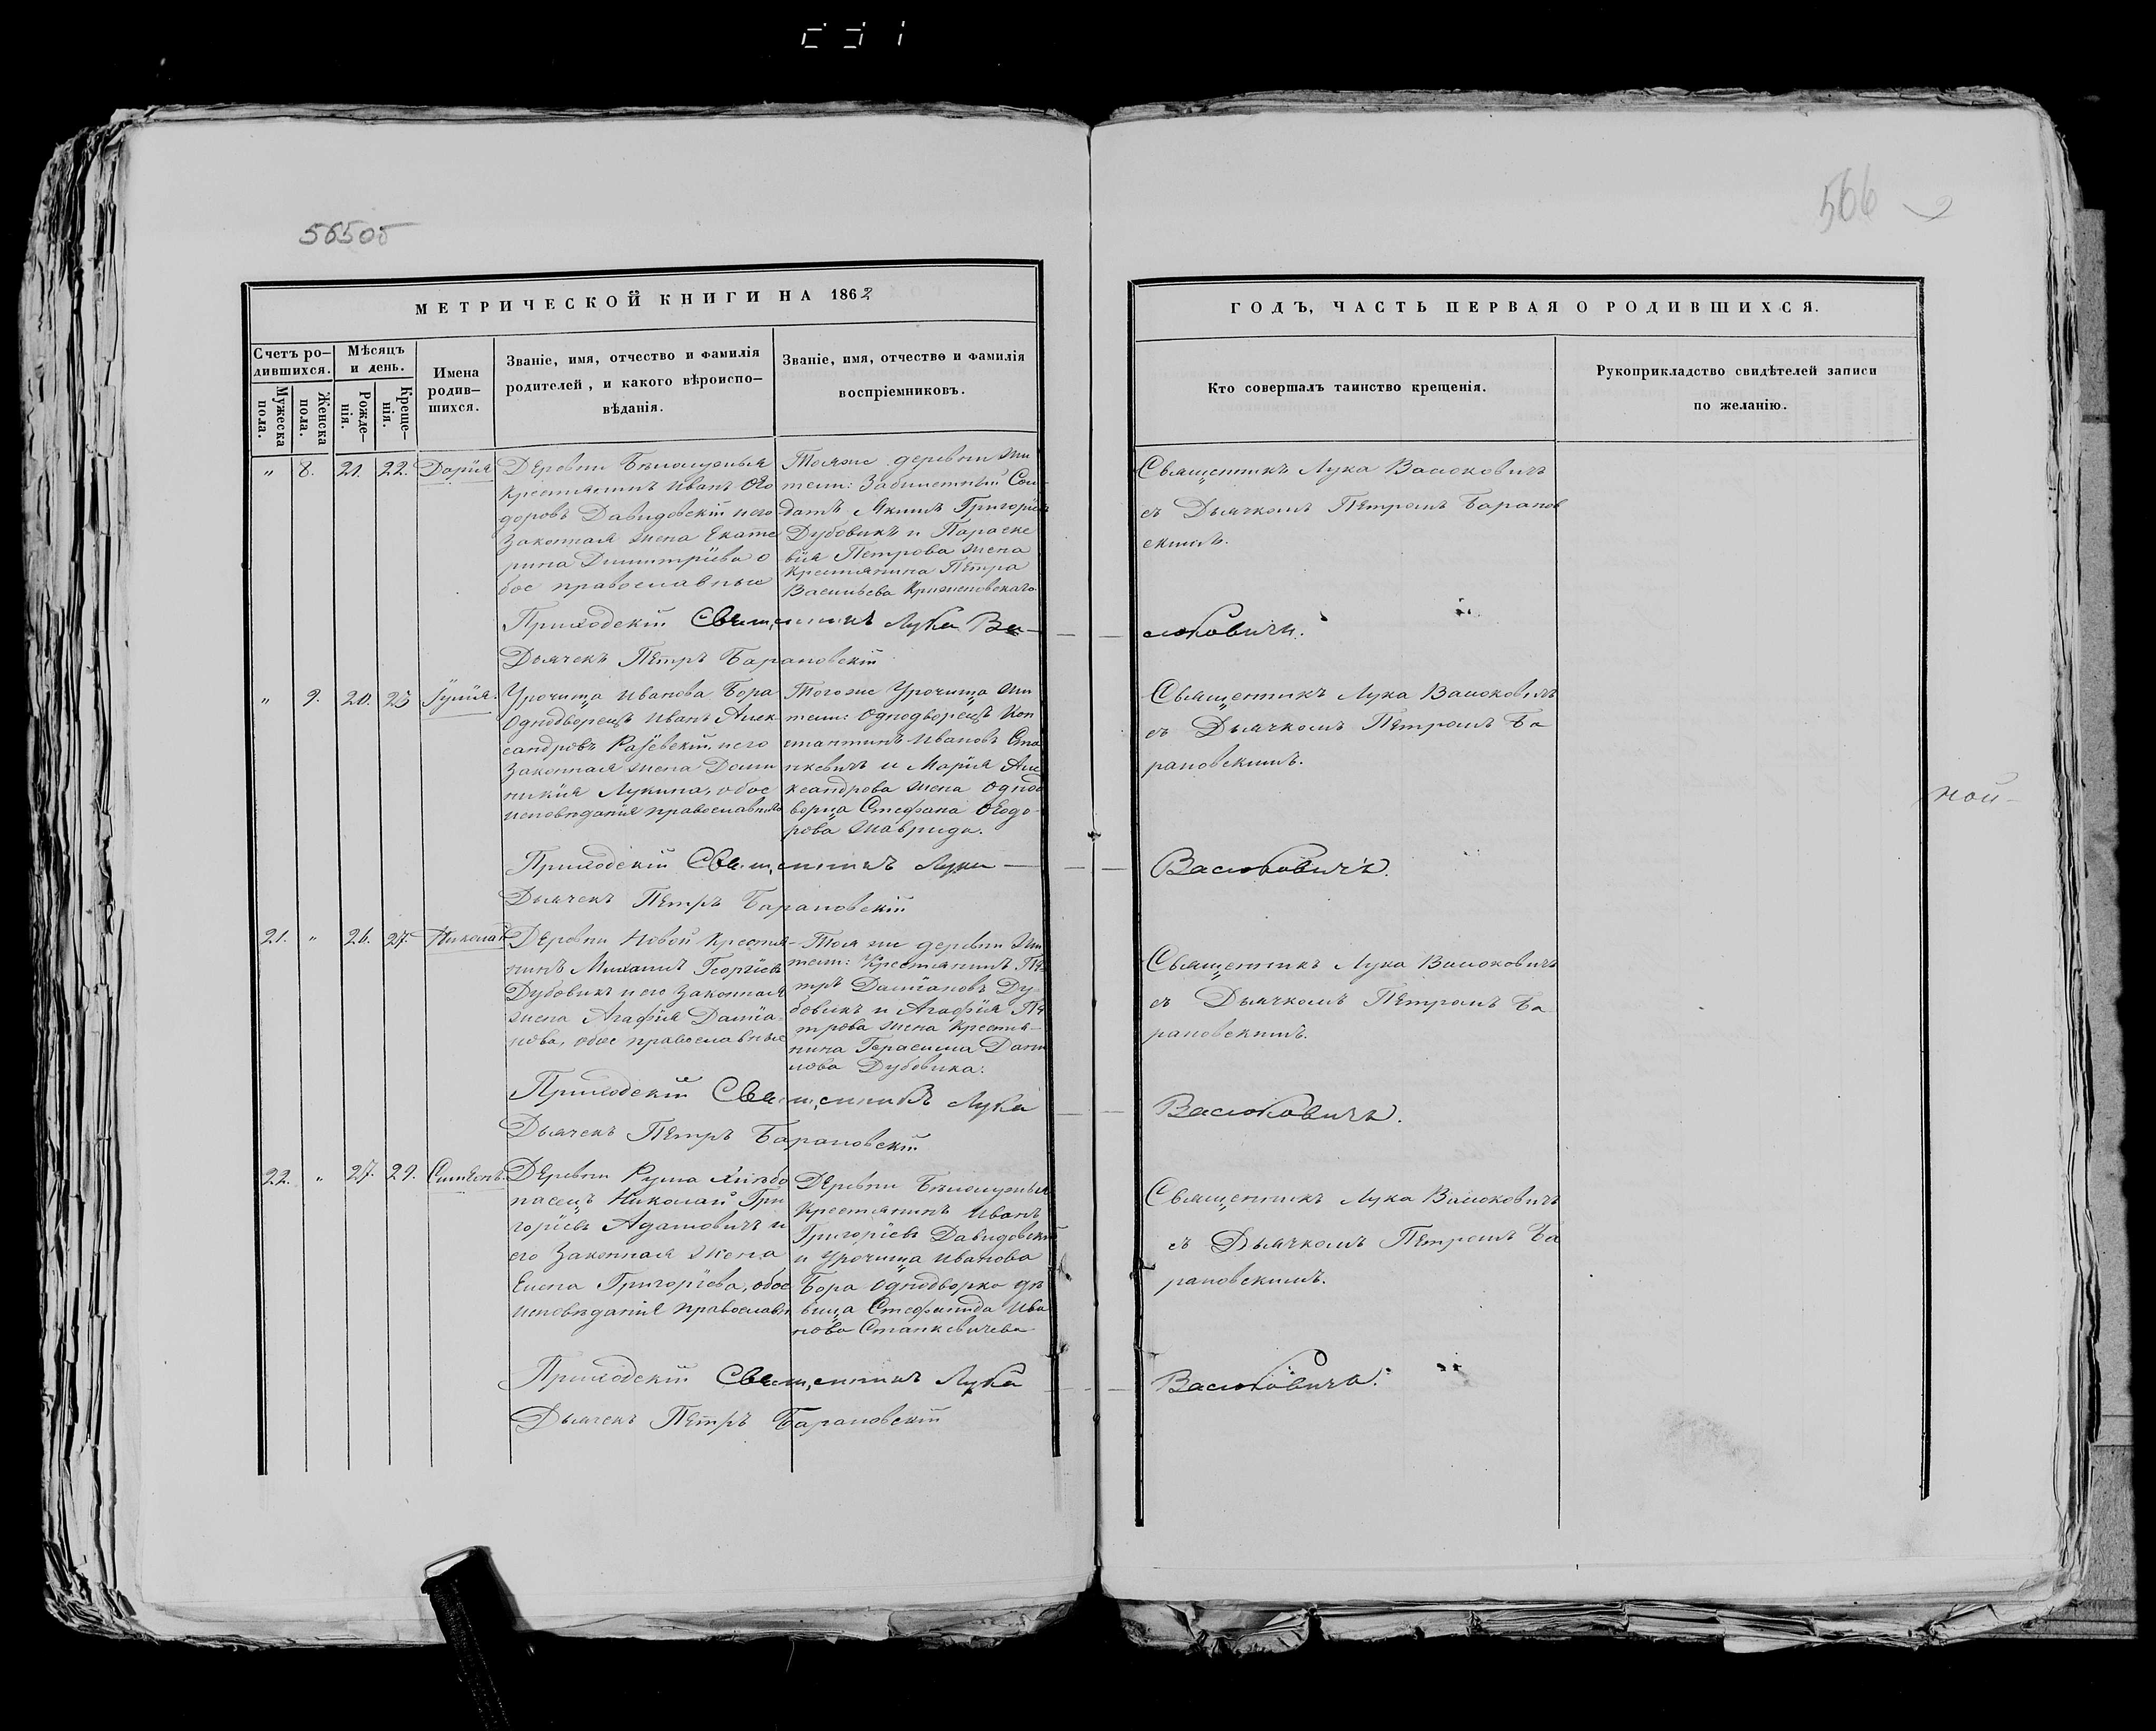 56505
566
МЕТРИЧЕСКОЙ КНИГИ НА 1862
ГОДЪ, ЧАСТЬ ПЕРВАЯ О РОДИВШИХСЯ.
Счетъ ро-
дившихся.
Мужеска
пола.
Женска
пола.
Мѣсяцъ
и день.
Рожде-
нія.
Креще-
нія.
Имена
родив-
шихся.
Званіе, имя, отчество и фамилія
родителей, и какого вѣроиспо-
вѣданія.
Званіе, имя, отчество и фамилія
воспріемниковъ.
Кто совершалъ таинство крещенія.
Рукоприкладство свидѣтелей записи
по желанію.
" 8. 21. 22. Дарія
Деревни Бѣлолужья
Крестянинъ Иванъ Ѳео
доровъ Давидовскій и его
Законная жена Екате
рина Димитріева о
бое православные
Тояже деревни жи
тели: Забилетный Сол
датъ Якимъ Григоріевъ
Дубовикъ и Параске
вія Петрова жена
Крестянина Петра
Васильева Крижановскаго
Священникъ Лука Васюковичъ
съ Дьячкомъ Петромъ Баранов
скимъ.
Приходскій Священникъ Лука Ва-
сюковичъ.
Дьячекъ Петръ Барановскій
" 9. 20. 23 Іулія.
Урочища Иванова Бора
Однодворецъ Иванъ Алек
сандровъ Раевскій, и его
Законная жена Доми
никія Лукина, обое
исповѣданія православнаго
Тогоже Урочища жи
тели: Однодворецъ Кон
стантинъ Ивановъ Ста
нкевичъ и Марія Але
ксандрова жена Однод
ворца Стефана Ѳеодо
рова
Священникъ Лука Васюковичъ
съ Дьячкомъ Петромъ Ба
рановскимъ.
Приходскій Священникъ Лука
Васюковичъ.
Дьячекъ Петръ Барановскій
21. " 26. 27. Николай
Деревни Новой Крестья-
нинъ Михаилъ Георгіевъ
Дубовикъ и его Законная
жена Агафія Даміа
нова, обое православные
Тоя же деревни жи
тели: Крестянинъ Пе
тръ Даміановъ Ду
бовикъ и Агафія Пе
трова жена Крестья-
нина Герасима Дани
лова Дубовика.
Священникъ Лука Васюковичъ
съ Дьячкомъ Петромъ Ба
рановскимъ.
Приходскій Священникъ Лука
Васюковичъ.
Дьячекъ Петръ Барановскій
22. " 27. 29. Симеонъ.
Деревни Рума Хлѣбо
пасецъ Николай Гри
горіевъ Адамовичъ и
его Законная жена
Елена Григоріева, обое
исповѣданія православн
Деревни Бѣлолужья
Крестянинъ Иванъ
Григоріевъ Давидовскій
и Урочища Иванова
Бора Однодворка дѣ
вица Стефанида Ива
нова Станкевичева
Священникъ Лука Васюковичъ
съ Дьячкомъ Петромъ Ба
рановскимъ.
Приходскій Священникъ Лука
Васюковичъ.
Дьячекъ Петръ Барановскій